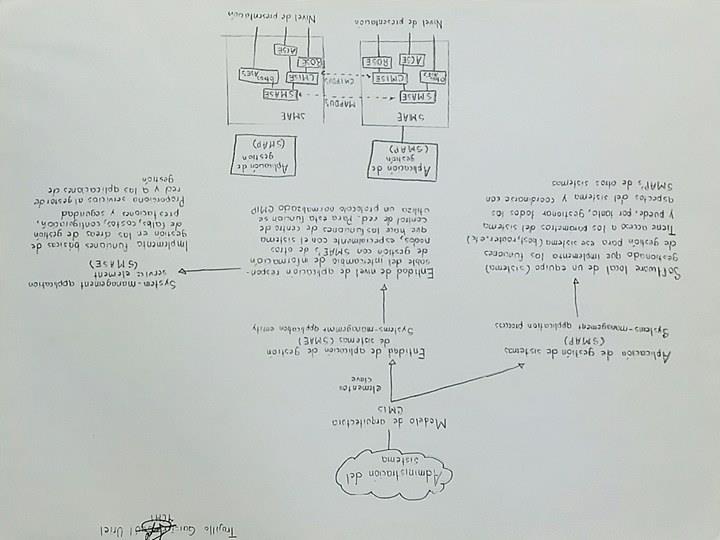 Trujillo
Uriel
7CM1
Administración del
sistema
Modelo de arquitectura
CMIS
elementos
clave
Aplicación de gestión de sistemas
(SMAP)
Systems-management application process
Software local de un equipo (sistema)
gestionado que implementa las funciones
de gestión para ese sistema (host, router, etc)
Tiene acceso a los parámetros del sistema
y puede, por tanto, gestionar todos los
aspectos del sistema y coordinarse con
SMAP's de otros sistemas
Entidad de aplicación de gestión
de sistemas (SMAE)
Systems-management application entity
Entidad de nivel de aplicación respon-
sable del intercambio de información
de gestión con SMAE's de otros
nodos, especialmente con el sistema
que hace las funciones de centro de
control de red. Para esta función se
utiliza un protocolo normalizado CMIP
System-management application
service element
(SMASE)
Implementa funciones básicas de
gestión en las áreas de gestión
de fallas, costos, configuración,
prestaciones y seguridad
Proporciona servicios al gestor de
red y a las aplicaciones de
gestión
Aplicación de
gestión
(SMAP)
SMAE
SMASE
Otros
ASE's
CMISE
ACSE
ROSE
Nivel de presentación
MAPDU's
CMIPDU's
Aplicación de
gestión
(SMAP)
SMAE
SMASE
CMISE
Otros
ASES
ROSE
ACSE
Nivel de presentación